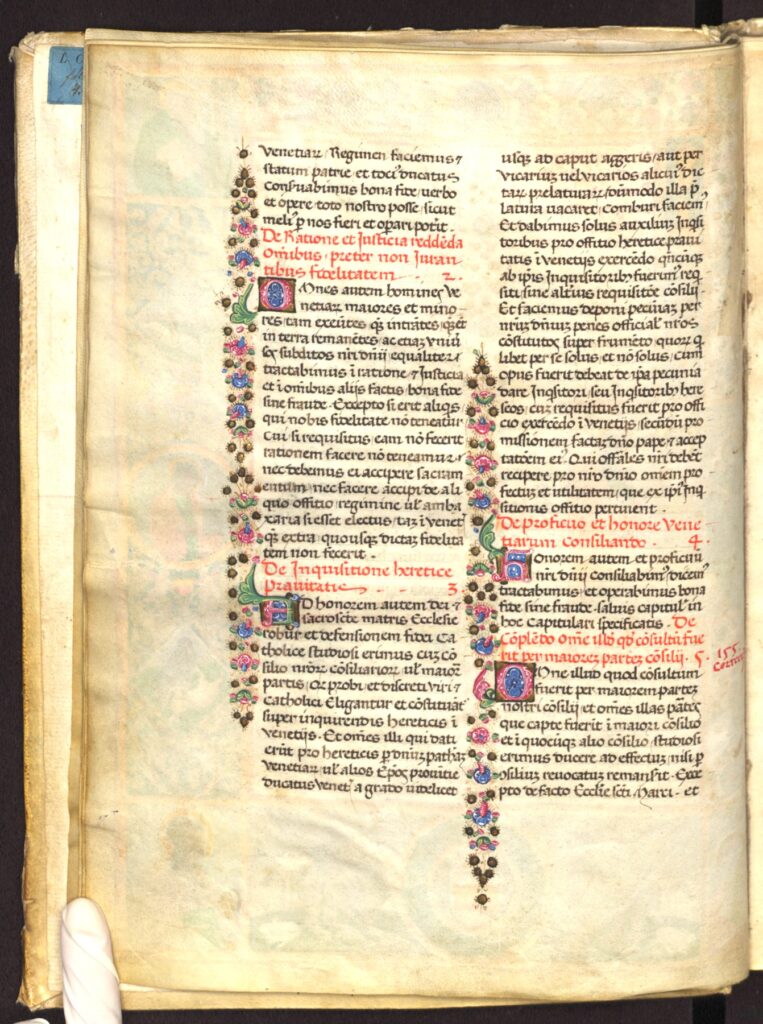 Venetiaꝝ. Regimen faciemus ⁊
statum patrie et toci' ducatus
Conẜuabimus bona fide verbo
et opere toto nostro posse, sicut
meli' ꝑ nos fieri et opari potit.
De Ratione et Iusticia reddēda
Omībus, preter non Iuran
tibus fidelitatem 2.
Omnes autem homines Ve
netiaꝝ maiores et mino
res tam exeūtes qꝫ intrātes, qꝫ et
in terra femanētes ac etiaꝫ vniu
subditos nr̄i dn̄ij equaliter
tractabimus ī ratione ⁊ Iusticia
et ī omībus alijs factis bona fide
sine fraude. Excepto si erit aliqs
qui nobis fidelitate nō teneatur
Cui si requisitus eam nō fecerit
rationem facere nō teneamur
nec debemus ei accipere sacram
entum, nec facere accipi de ali
quo offitio regimine ul' amba
xaria si esset electus, taꝫ ī venet
qꝫ extra quousqꝫ dictaꝫ fidelita
tem non fecerit.
De Inquisitione heretice
Prauitatis 3.
AD honorem autem dei ⁊
sacroscte matris Ecclesie
robur et defensionem fidei Ca
tholice studiosi erimus cuꝫ cō
silio nr̄oꝝ cōsiliarioꝝ ul' maioꝝ
partis, qꝫ probi et discreti viri ⁊
Catholici Eligantur et cōstituāt
super inquirendis hereticis ī
venetijs. Et oēs illi qui dati
erūt pro hereticis ꝑ dn̄uꝫ pathaꝫ
Venetiaꝝ ul' alios Ep̄os prouītie
ducatus Venet' a grado videlicet
usqꝫ ad caput aggeris, aut per
vicarium vel vicarios alicui' dic
taꝝ prelaturaꝝ, dūmodo illa p̄
latura vacaret, Comburi faciem'
Et dabimus solus auxiliuꝫ Inqsi
toribus pro offitio heretice praui
tatis ī venetijs exercēdo qn̄cuqꝫ
ab ip̄is Inquisitoribꝫ fuerim' req
siti sine alteri' requisitiōe cōsilij.
Et faciemus deponi pecuniaꝫ per
nr̄uꝫ dn̄iuꝫ penes official' nr̄os
cōstitutos super frumēto quoꝝ q̄
libet per se solus et nō solus, cum
opus fuerit debeat de ip̄a pecunia
dare Inqsitori seu Inqsitoribꝫ here
seos, cuꝫ requisitus fuerit pro offi
cio exercēdo ī venetijs secūdū pro
missionem factaꝫ dn̄o pape, ⁊ accep
tatōem ei'. Qui offāles nr̄i debēt
recipere pro nr̄o dn̄io omēm pro
fectuꝫ et utilitatem, que ex ip̄i' Inq
sitionis offitio perueniēt.
De proficuo et honore Vene
tiarum Consiliando. 4.
Honorem autem et proficuū
nr̄i dn̄ij consiliabim' dicem'
tractabimus et operabimus bona
fide sine fraude, saluis capitul' in
hoc Capitulari specificatis. De
Cōplēdo om̄e illō qd̄ cōsultū fue
rit per maioreꝫ parteꝫ cōsilij. 5. 155
Omne illud quod cōsultum
fuerit per maiorem parteꝫ
nostri cōsilij et om̄es illas ptēs
que capte fuerīt ī maiori cōsilio
et ī quocūqꝫ alio cōsilio, studiosi
erimus ducere ad effectuꝫ, nisi ꝑ
cōsiliuꝫ reuocatuꝫ remanserit. Exce
pto de facto Ecclie scti Marci. et